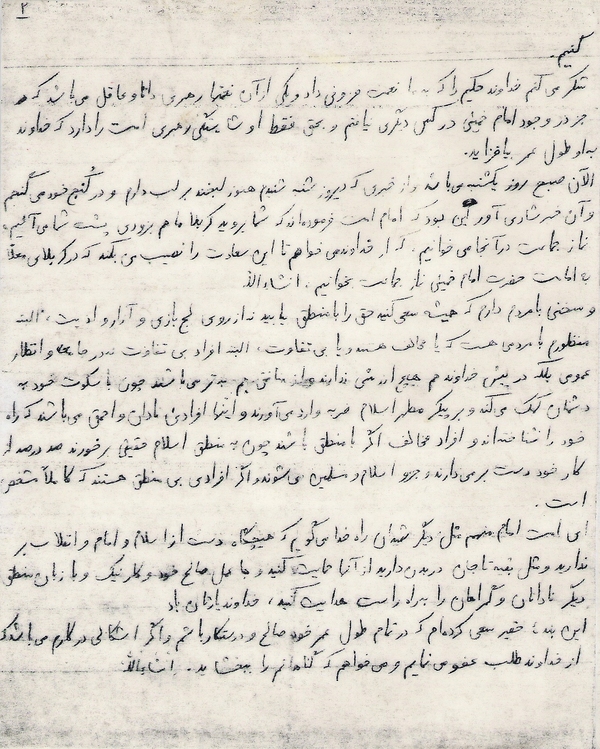 ۲
کنیم.
شکر می کنم خداوند حکیم را که به ما نعمت فزونی داد و یکی از آن نعمتها رهبری دانا و عاقل می باشد که
جز در وجود امام خمینی در کس دیگری نیافتم و بحق فقط او شایستگی رهبری امت را دارد که خداوند
به او طول عمر بیافزاید.
الآن صبح روز یکشنبه می باشد و از خبری که دیروز شنبه شنیدم هنوز لبخند بر لب دارم و در گنج خود می گنجم
و آن خبر شادی آور این بود که امام امت فرموده اند که شما بروید کربلا ما هم بزودی پشت شما می آئیم،
نماز جماعت در آنجا می خوانیم. که از خداوند می خواهم تا این سعادت را نصیب می بکند که در کربلای معلا
به امامت حضرت امام خمینی نماز جماعت بخوانیم. انشاءالله
و سخنی با مردم دارم که همیشه سعی کنید حق را با منطق بیابید نه از روی لج بازی و آزار و اذیت، البته
منظورم با مردمی هست که یا مخالف هستند و یا بی تفاوت، البته افراد بی تفاوت نه در جامعه و انظار
عمومی بلکه در پیش خداوند هم هیچ ارزشی ندارند و از منافق هم بدتر می باشند چون با سکوت خود به
دشمنان کمک می کند و بر پیکر مطهر اسلام ضربه وارد می آورند و اینها افرادی نادان و احمق می باشند که راه
خود را نشناخته اند و افراد مخالف اگر با منطق باشند چون به منطق اسلام حقیقی برخورند صد درصد از
کار خود دست بر می دارند و جزو اسلام و مسلمین می شوند و اگر افرادی بی منطق هستند که کاملاً مشخص
است.
ای امت امام منهم مثل دیگر شهیدان راه خدا می گویم که هیچگاه دست از اسلام و امام و انقلاب بر
ندارید و مثل بقیه تا جان در بدن دارید از آنها حمایت کنید و با عمل صالح خود و کار نیک و با زبان منطق
دیگر نادانان و گمراهان را براه راست هدایت کنید، خداوند یارتان باد
این بنده حقیر سعی کرده ام که در تمام طول عمر خود صالح و درستکار باشم و اگر اشکالی در کارم می باشد که
از خداوند طلب عفو می نمایم و می خواهم که گناهانم را ببخشاید. انشاءالله